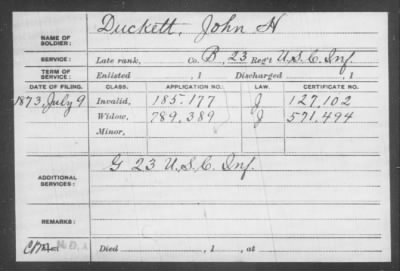 NAME OF SOLDIER: Duckett, John H
SERVICE: Late rank, Co. B, 23 Reg't U.S.C. Inf.
TERM OF SERVICE: Enlisted , 1 Discharged , 1
DATE OF FILING. CLASS. APPLICATION NO. LAW. CERTIFICATE NO.
1873, July 9 Invalid, 185.177 J 127.102
Widow, 789.389 J 571.494
Minor,
ADDITIONAL SERVICES: G 23 U.S.C. Inf.
REMARKS:
Died , 1 , at